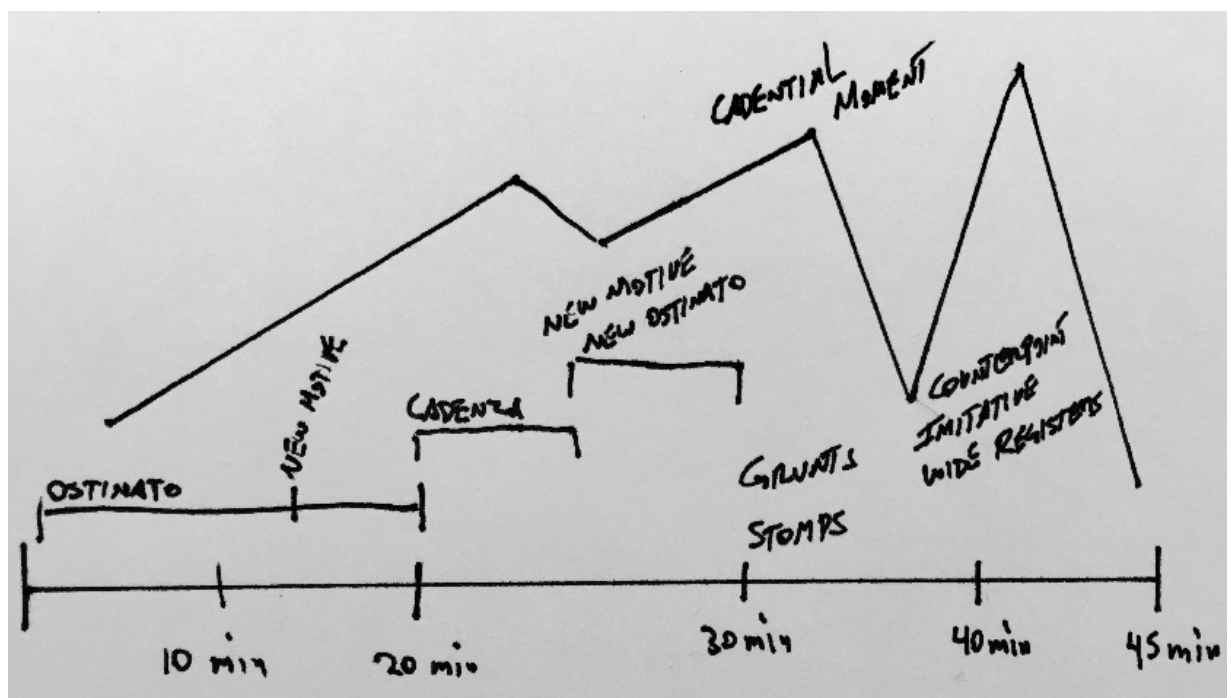 CADENTIAL
MOMENT
NEW MOTIVE
NEW OSTINATO
NEW MOTIVE
CADENZA
OSTINATO
COUNTERPOINT
IMITATIVE
WIDE REGISTERS
GRUNTS
STOMPS
10 min
20 min
30 min
40 min
45 min